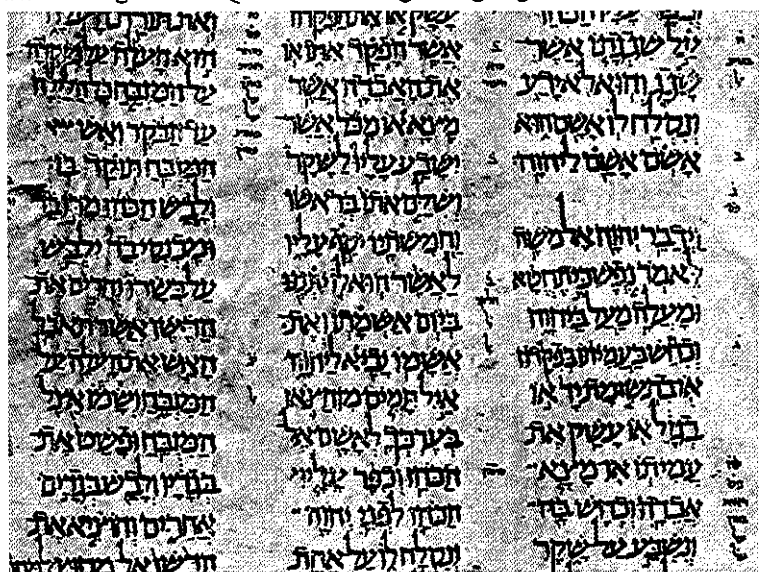 וכפר עליו הכהן
על שגגתו אשר
שגג והוא לא ידע
ונסלח לו אשם הוא
אשם אשם ליהוה
וידבר יהוה אל משה
לאמר נפש כי תחטא
ומעלה מעל ביהוה
וכחש בעמיתו בפקדון
או בתשומת יד או
בגזל או עשק את
עמיתו או מצא
אבדה וכחש בה
ונשבע על שקר
עשק או את הפקדון
אשר הפקד אתו או
את האבדה אשר
מצא או מכל אשר
ישבע עליו לשקר
ושלם אתו בראשו
וחמשתיו יסף עליו
לאשר הוא לו יתננו
ביום אשמתו ואת
אשמו יביא ליהוה
איל תמים מן הצאן
בערכך לאשם אל
הכהן וכפר עליו
הכהן לפני יהוה
ונסלח לו על אחת
זאת תורת העלה
הוא העלה על מוקדה
על המזבח כל הלילה
עד הבקר ואש
המזבח תוקד בו
ולבש הכהן מדו בד
ומכנסי בד ילבש
על בשרו והרים את
הדשן אשר תאכל
האש את העלה על
המזבח ושמו אצל
המזבח ופשט את
בגדיו ולבש בגדים
אחרים והוציא את
הדשן אל מחוץ